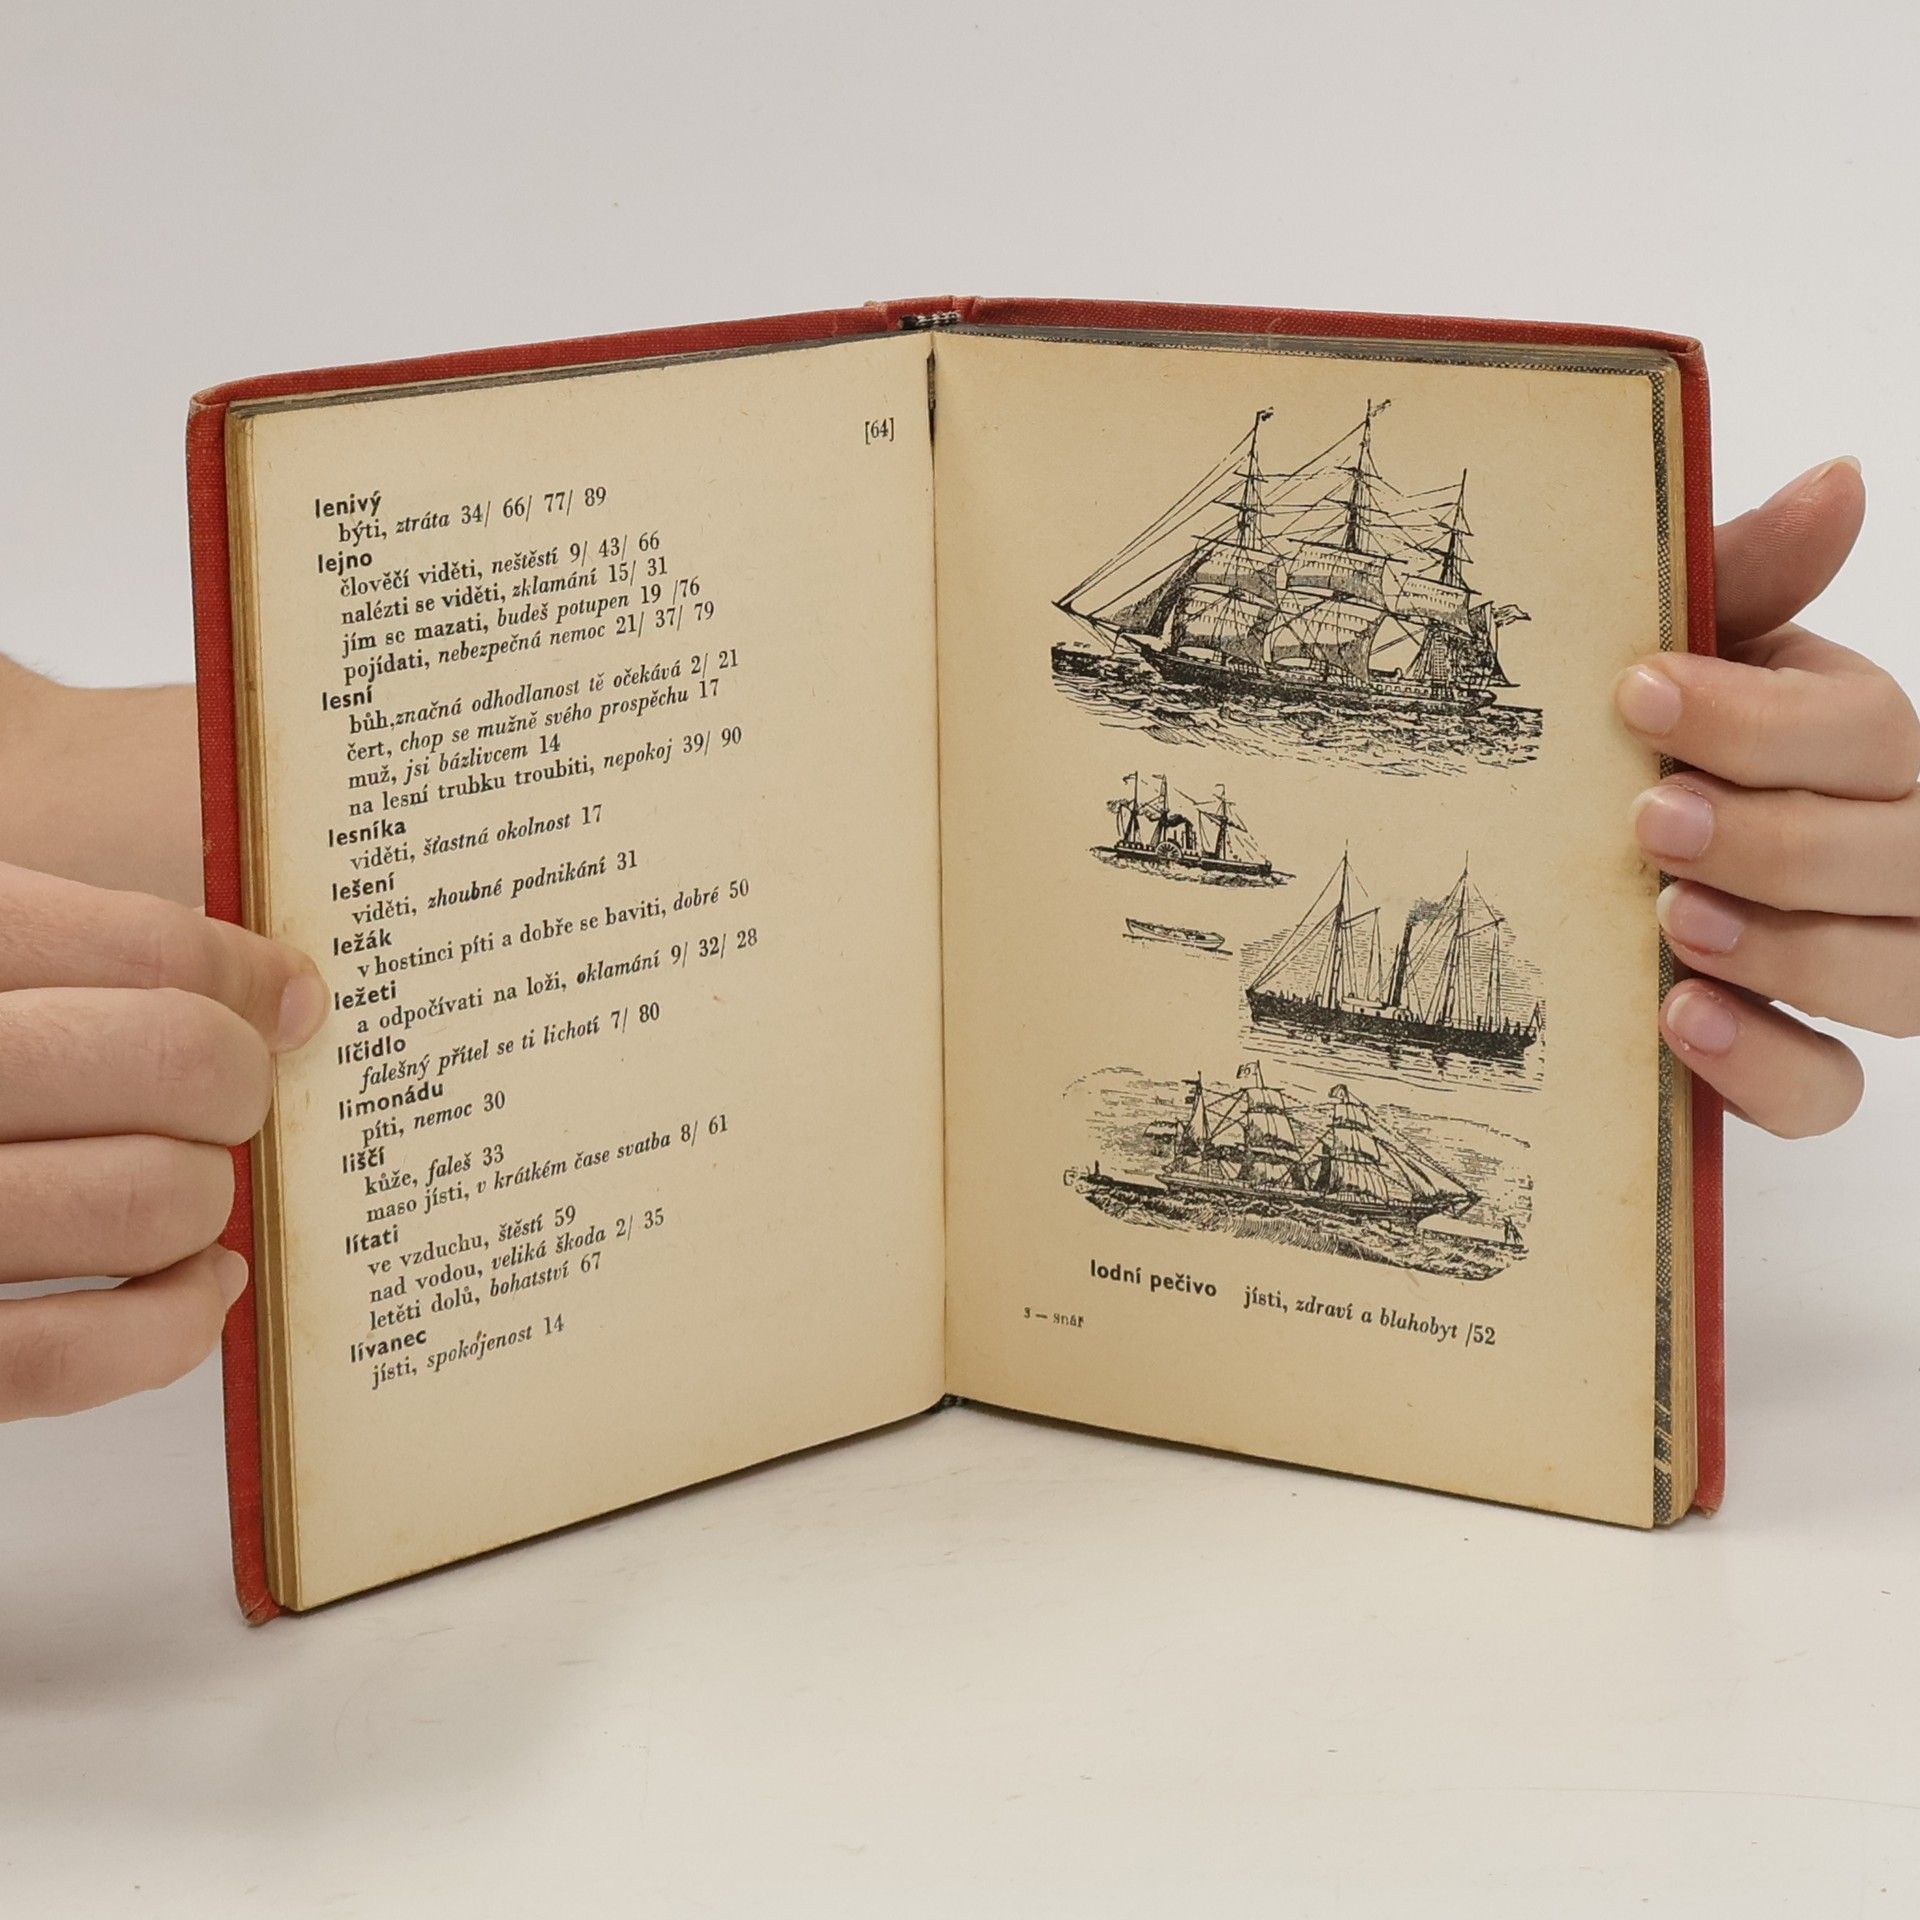 [64]
lenivý
býti, ztráta 34/ 66/ 77/ 89
lejno
člověčí viděti, neštěstí 9/ 43/ 66
nalézti se viděti, zklamání 15/ 31
jím se mazati, budeš potupen 19 /76
pojídati, nebezpečná nemoc 21/ 37/ 79
lesní
bůh,značná odhodlanost tě očekává 2/ 21
čert, chop se mužně svého prospěchu 17
muž, jsi bázlivcem 14
na lesní trubku troubiti, nepokoj 39/ 90
lesníka
viděti, šťastná okolnost 17
lešení
viděti, zhoubné podnikání 31
ležák
v hostinci píti a dobře se baviti, dobré 50
ležeti
a odpočívati na loži, oklamání 9/ 32/ 28
líčidlo
falešný přítel se ti lichotí 7/ 80
limonádu
píti, nemoc 30
liščí
kůže, faleš 33
maso jísti, v krátkém čase svatba 8/ 61
lítati
ve vzduchu, štěstí 59
nad vodou, veliká škoda 2/ 35
letěti dolů, bohatství 67
lívanec
jísti, spokojenost 14
lodní pečivo jísti, zdraví a blahobyt /52
3 — snář